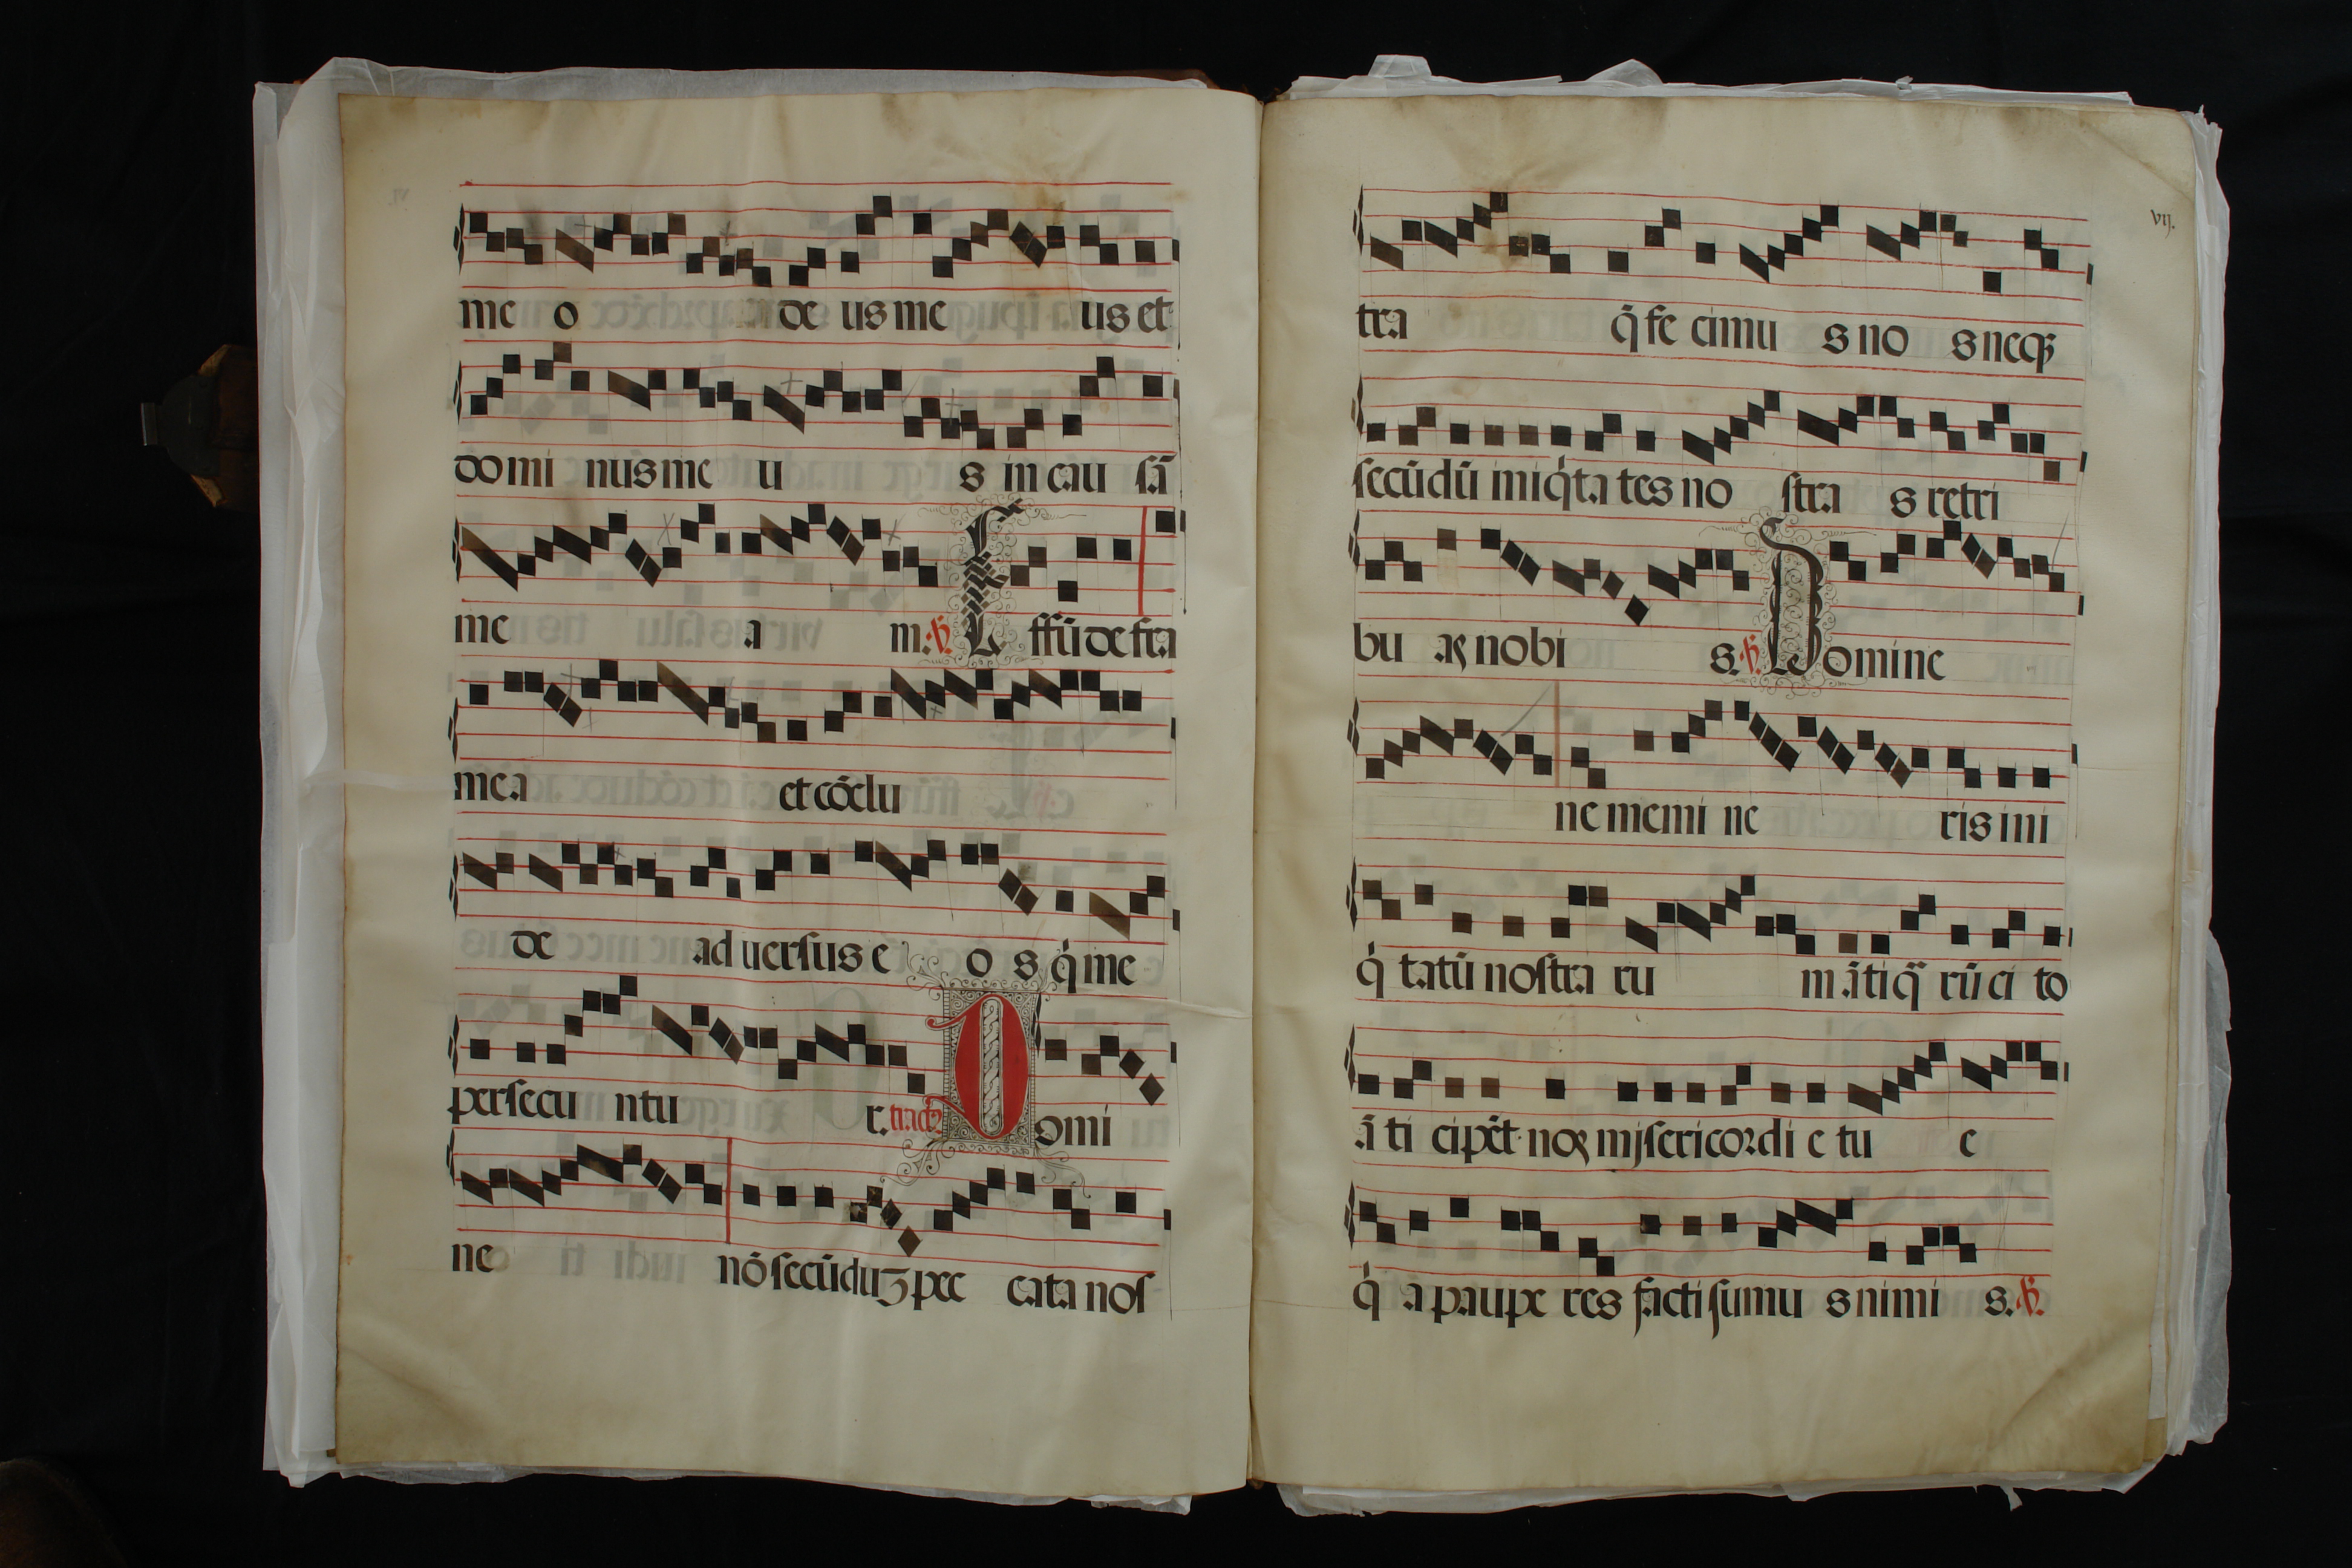 me o de us me us et
domi nus me u s in cau sā
me a m. ℣. Effūde fra
mea et cōclu
de ad uersus e o s q̇ me
persecu ntu r. tract₉ Domi
ne nō secūduꝫ pec cata nos
vij.
tra q̄ fe cimu s no s neqꝫ
secūdū iniq̇ta tes no stra s retri
bu as nobi s. ℣. Domine
ne memi ne ris ini
q̇ tatū nostra ru m āti q̄ rū ci to
ā ti cipēt nos misericordi e tu e
q̇ a paupe res facti sumu s nimi s. ℣.